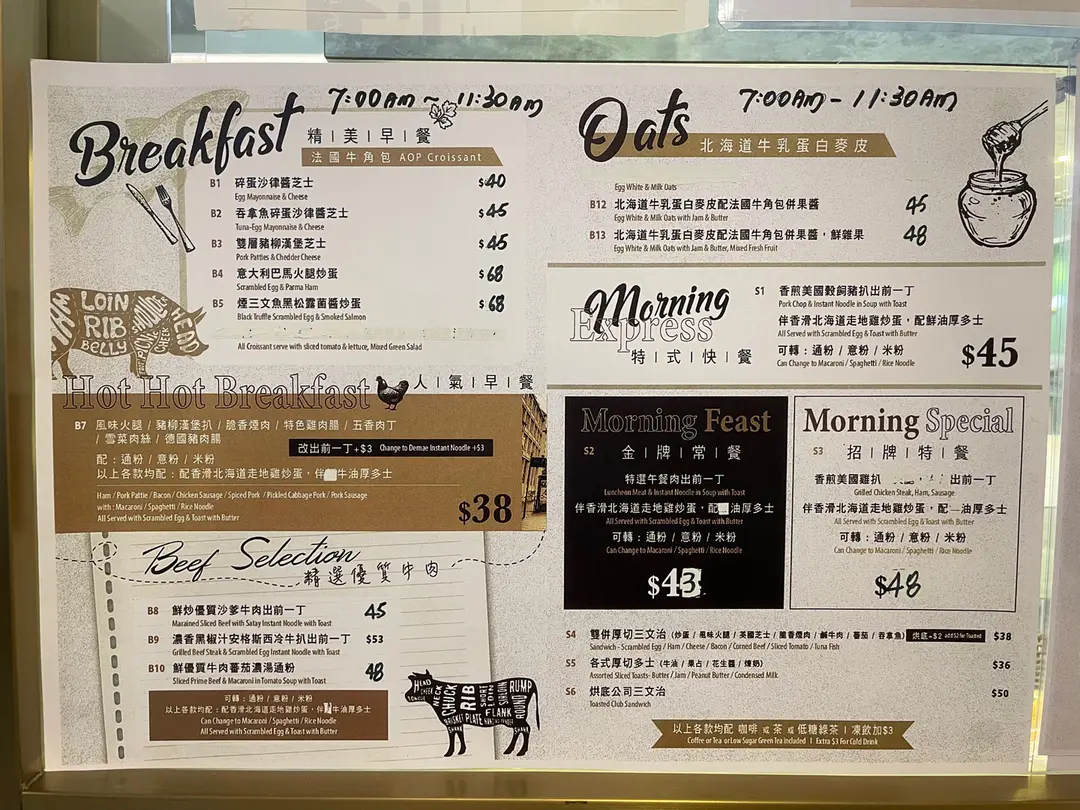 Breakfast
7:00AM ~ 11:30AM
精 | 美 | 早 | 餐
法國牛角包 AOP Croissant
B1 碎蛋沙律醬芝士 $40
Egg Mayonnaise & Cheese
B2 吞拿魚碎蛋沙律醬芝士 $45
Tuna-Egg Mayonnaise & Cheese
B3 雙層豬柳漢堡芝士 $45
Pork Patties & Chedder Cheese
B4 意大利巴馬火腿炒蛋 $68
Scrambled Egg & Parma Ham
B5 煙三文魚黑松露菌醬炒蛋 $68
Black Truffle Scrambled Egg & Smoked Salmon
All Croissant serve with sliced tomato & lettuce, Mixed Green Salad
LOIN
RIB
BELLY
PICNIC
SHOULDER
HEAD
Hot Hot Breakfast 人 | 氣 | 早 | 餐
B7 風味火腿 / 豬柳漢堡扒 / 脆香煙肉 / 特色雞肉腸 / 五香肉丁
/ 雪菜肉絲 / 德國豬肉腸
改出前一丁+$3 Change to Demae Instant Noodle +$3
配：通粉 / 意粉 / 米粉
以上各款均配：配香滑北海道走地雞炒蛋，伴 牛油厚多士
Ham / Pork Pattie / Bacon / Chicken Sausage / Spiced Pork / Pickled Cabbage Pork / Pork Sausage
with : Macaroni / Spaghetti / Rice Noodle
All Served with Scrambled Egg & Toast with Butter
$38
Beef Selection
精選優質牛肉
B8 鮮炒優質沙爹牛肉出前一丁 45
Marained Sliced Beef with Satay Instant Noodle with Toast
B9 濃香黑椒汁安格斯西冷牛扒出前一丁 $53
Grilled Beef Steak & Scrambled Egg Instant Noodle with Toast
B10 鮮優質牛肉蕃茄濃湯通粉 48
Sliced Prime Beef & Macaroni in Tomato Soup with Toast
可轉：通粉 / 意粉 / 米粉
以上各款均配：配香滑北海道走地雞炒蛋，伴 牛油厚多士
Can Change to Macaroni / Spaghetti / Rice Noodle
All Served with Scrambled Egg & Toast with Butter
HEAD
CHEEK
TONGUE
NECK
CHUCK
RIB
SHORT LOIN
SIRLOIN
RUMP
ROUND
BRISKET
PLATE
FLANK
SHANK
SHANK
Oats
7:00AM - 11:30AM
北海道牛乳蛋白麥皮
Egg White & Milk Oats
B12 北海道牛乳蛋白麥皮配法國牛角包併果醬 45
Egg White & Milk Oats with Jam & Butter
B13 北海道牛乳蛋白麥皮配法國牛角包併果醬，鮮雜果 48
Egg White & Milk Oats with Jam & Butter, Mixed Fresh Fruit
Morning
Express
特 | 式 | 快 | 餐
S1 香煎美國穀飼豬扒出前一丁
Pork Chop & Instant Noodle in Soup with Toast
伴香滑北海道走地雞炒蛋，配鮮油厚多士
All Served with Scrambled Egg & Toast with Butter
可轉：通粉 / 意粉 / 米粉
Can Change to Macaroni / Spaghetti / Rice Noodle
$45
Morning Feast
S2 金 | 牌 | 常 | 餐
特選午餐肉出前一丁
Luncheon Meat & Instant Noodle in Soup with Toast
伴香滑北海道走地雞炒蛋，配 油厚多士
All Served with Scrambled Egg & Toast with Butter
可轉：通粉 / 意粉 / 米粉
Can Change to Macaroni / Spaghetti / Rice Noodle
$43
Morning Special
S3 招 | 牌 | 特 | 餐
香煎美國雞扒 出前一丁
Grilled Chicken Steak, Ham, Sausage
伴香滑北海道走地雞炒蛋，配 油厚多士
All Served with Scrambled Egg & Toast with Butter
可轉：通粉 / 意粉 / 米粉
Can Change to Macaroni / Spaghetti / Rice Noodle
$48
S4 雙併厚切三文治 (炒蛋 / 風味火腿 / 英國芝士 / 脆香煙肉 / 鹹牛肉 / 蕃茄 / 吞拿魚) 烘底+$2 add $2 for Toasted $38
Sandwich - Scrambled Egg / Ham / Cheese / Bacon / Corned Beef / Sliced Tomato / Tuna Fish
S5 各式厚切多士 (牛油 / 果占 / 花生醬 / 煉奶) $36
Assorted Sliced Toasts- Butter / Jam / Peanut Butter / Condensed Milk
S6 烘底公司三文治 $50
Toasted Club Sandwich
以上各款均配 咖啡 或 茶 或 低糖綠茶 | 凍飲加$3
Coffee or Tea or Low Sugar Green Tea included | Extra $3 For Cold Drink